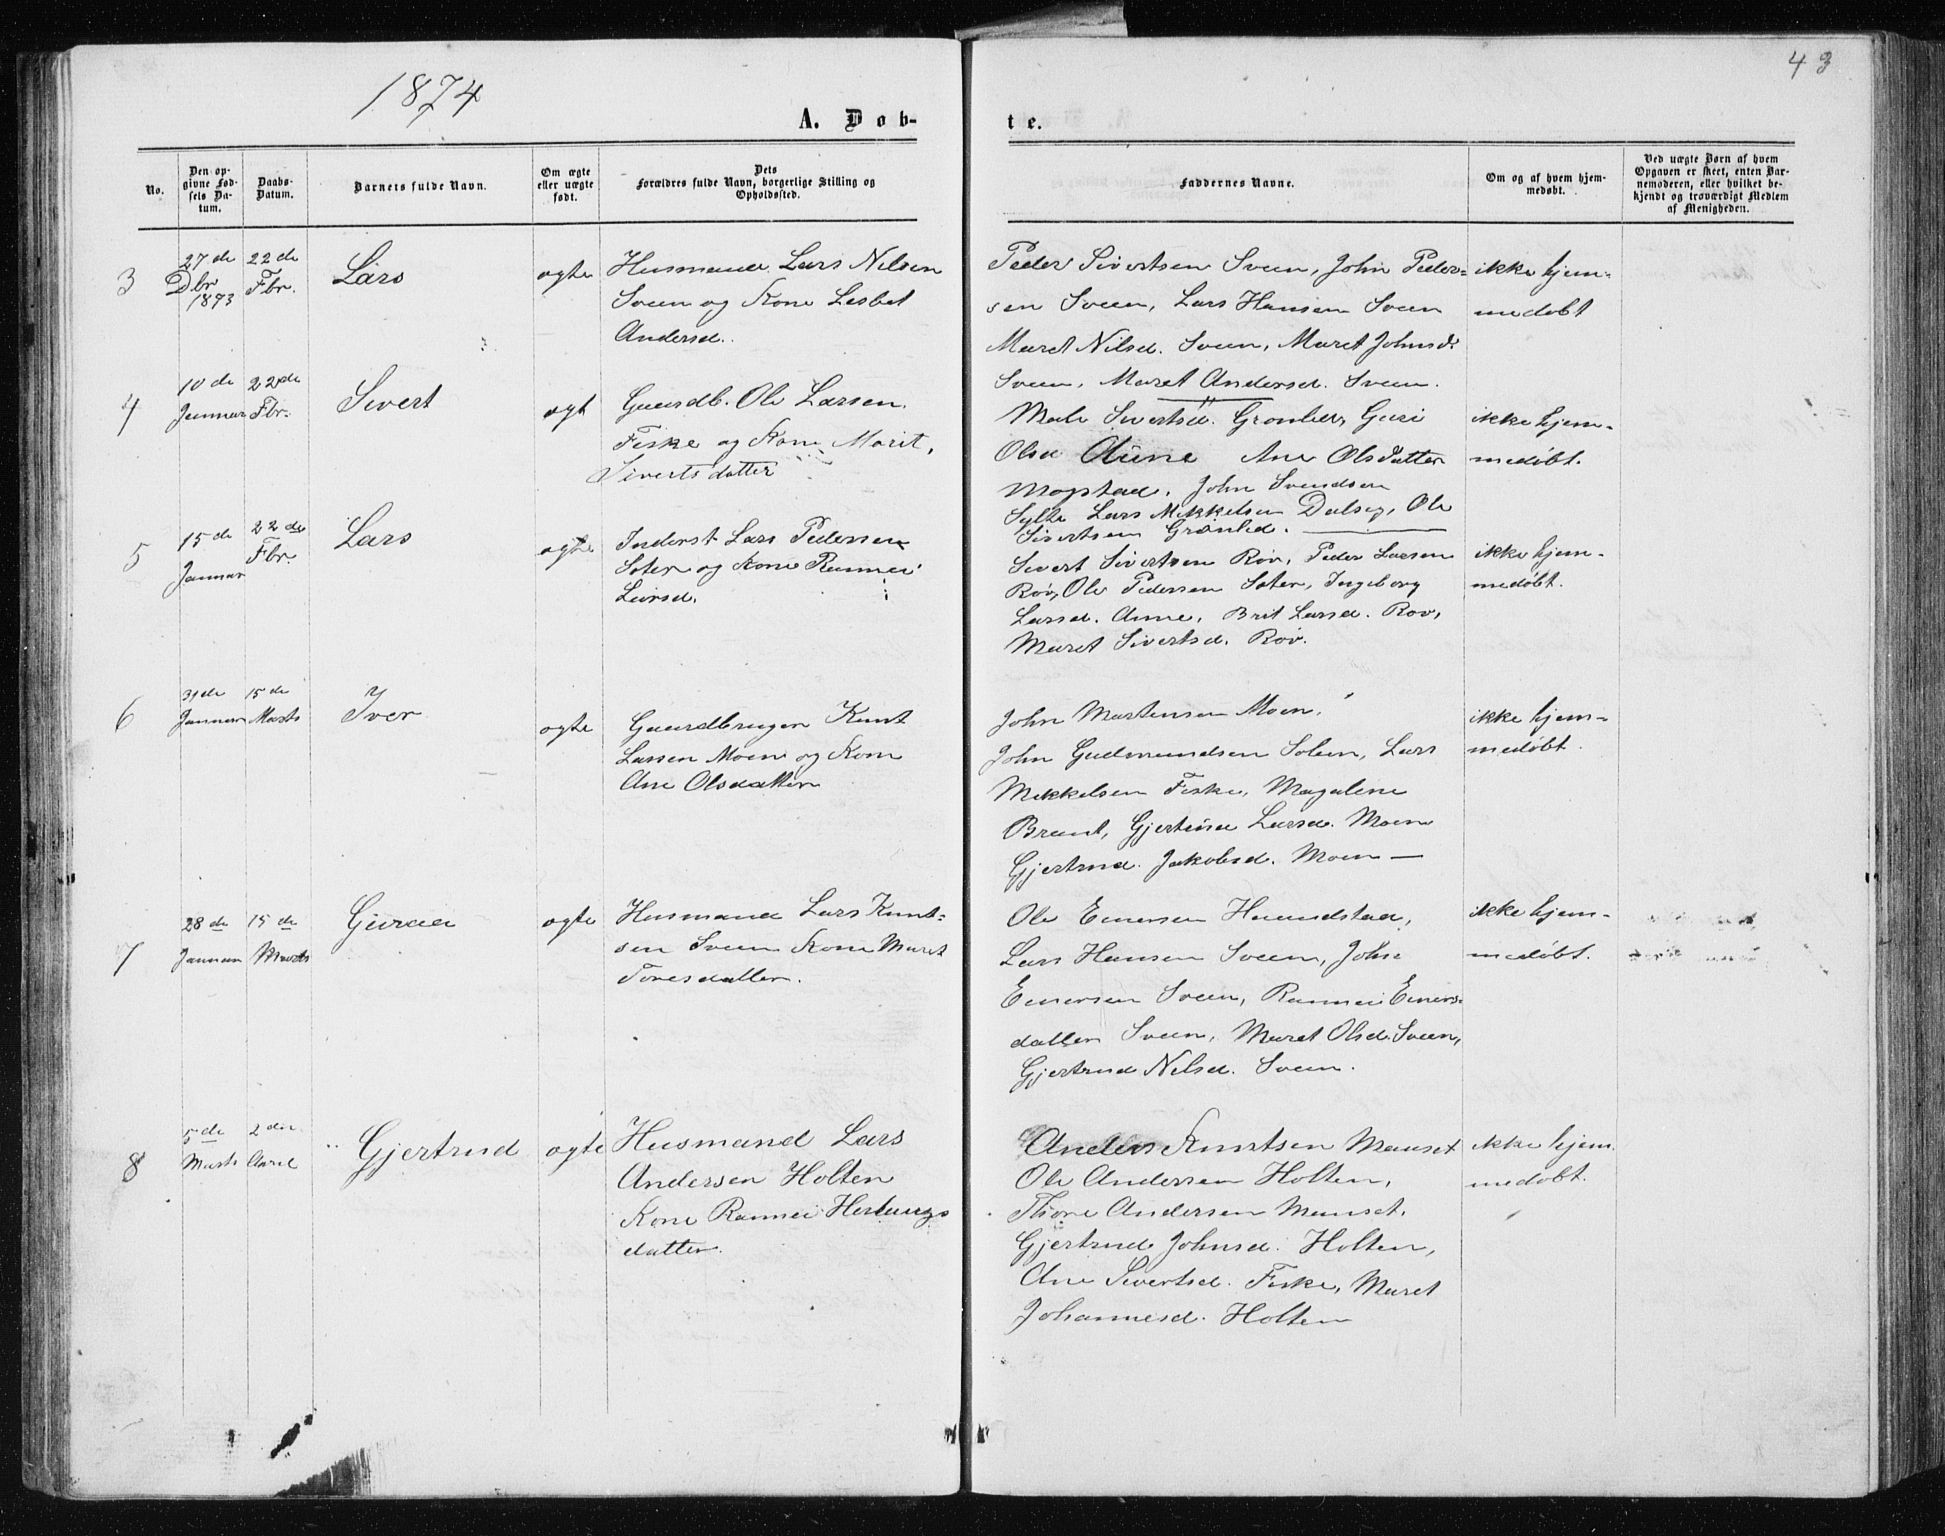 1874
43
A. Døb-
te.
No.
Den op-
givne Fød-
sels Da-
tum.
Daabs-
Datum.
Barnets fulde Navn.
Om ægte
eller uægte
født.
Dets
Forældres fulde Navn, borgerlige Stilling og
Opholdssted.
Faddernes Navne.
Om og af hvem hjem-
medøbt.
Ved uægte Børn af hvem
Opgaven er skeet, enten Bar-
nemoderen, eller hvilket be-
kjendt og troværdigt Medlem
af Menigheden.
3
27de
Dbr
1873
22de
Fbr.
Lars
ægte
Husmand Lars Nilsen
Sveen og Kone Lisbet
Andersd.
Peder Sivertsen Sveen, John Peder=
sen Sveen, Lars Hansen Sveen
Maret Nilsd. Sveen, Maret Johnsd.
Sveen, Maret Andersd. Sveen.
ikke hjem=
medøbt
4
10de
Januar
22de
Fbr.
Sivert
ægt
Gaardb. Ole Larsen
Fiske og Kone Marit
Sivertsdatter
Male Sivertsd. Grønlier, Guri
Olsd Aune Ane Olsdatter
Mogstad, John Svendsen
Sylte Lars Mikkelsen Dalseg, Ole
Sivertsen Grønlid.
ikke hjem=
medøbt.
5
15de
Januar
22de
Fbr.
Lars
ægte
Inderst Lars Pedersen
Søter og Kone Rannei
Larsd.
Sivert Sivertsen Røv, Peder Larsen
Røv, Ole Pedersen Søter, Ingeborg
Larsd. Aune, Brit Larsd. Røv,
Maret Sivertsd. Røv.
ikke hjem=
medøbt.
6
31de
Januar
15de
Marts
Iver
ægte
Gaardbruger Knut
Larsen Moen og Kone
Ane Olsdatter
John Mortensen Moen,
John Gudmundsen Solem, Lars
Mikkelsen Fiske, Magalene
Brandt, Gjertine Larsd. Moen
Gjertrud Jakobsd. Moen —
ikke hjem=
medøbt.
7
28de
Januar
15de
Marts
Guraa
ægte
Husmand Lars Knut=
sen Sveen Kone Maret
Toresdatter.
Ole Enersen Haandstad,
Lars Hansen Sveen, John
Enersen Sveen, Rannei Eners=
datter Sveen, Maret Olsd. Sveen,
Gjertrud Nilsd. Sveen.
ikke hjem=
medøbt.
8
5de
Marts
2den
April
Gjertrud
ægte
Husmand Lars
Andersen Holten
Kone Rannei Herbrugs
datter.
Anders Knutsen Mauset
Ole Andersen Holten,
Thore Andersen Mauset,
Gjertrud Johnsd. Holten,
Ane Sivertsd. Fiske, Maret
Johannesd. Holten
ikke hjem
medøbt.